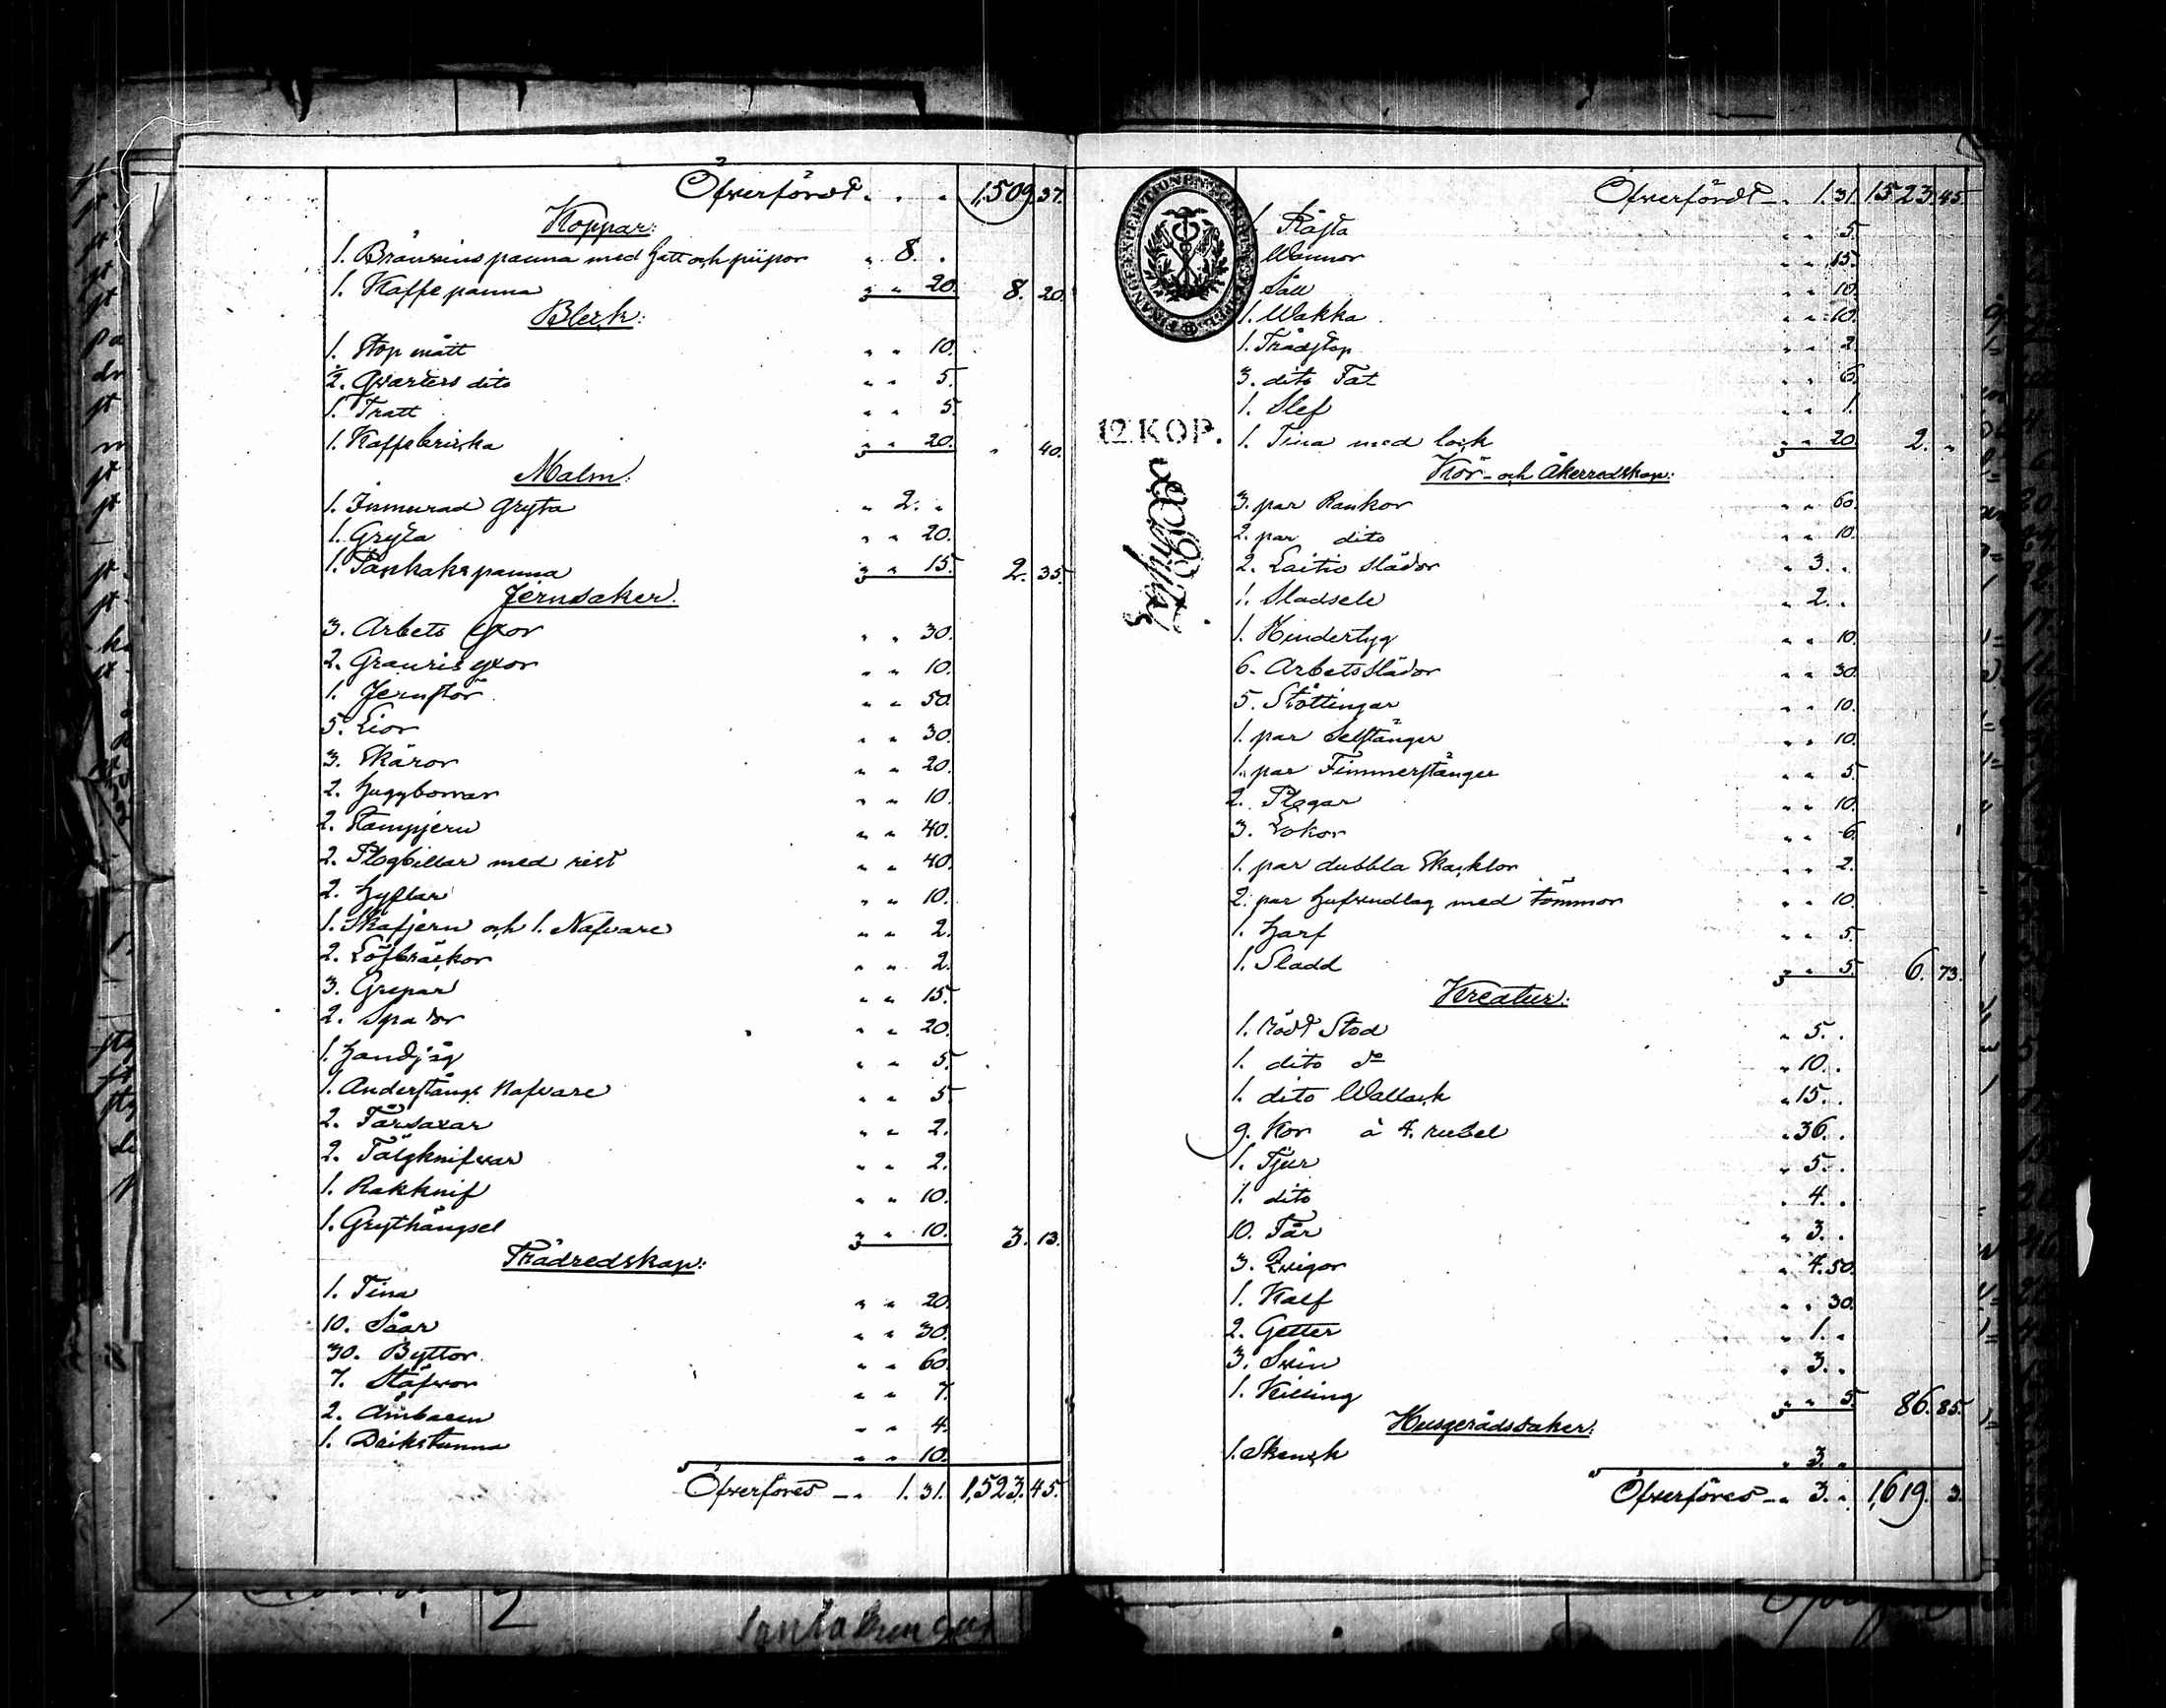 Öfverfördt . . . 1,509. 37.
Koppar:
1. Bränvins panna med hatt och piipor " 8. "
1. Kaffe panna " " 20. 8. 20.
Bleck:
1. Stop mått " " 10.
2. Qvarters dito " " 5.
1. Tratt " " 5.
1. Kaffebricka " " 20. " 40.
Malm:
1. Inmurad Gryta " 2. "
1. Gryta " " 20.
1. Pankakspanna " " 15. 2. 35.
Jernsaker.
3. Arbets yxor " " 30.
2. Granris yxor " " 10.
1. Jernstör " " 50.
5. Lior " " 30.
3. Skäror " " 20.
2. Huggborrar " " 10.
2. Stampjern " " 40.
2. Plogbillar med rist " " 40.
2. Hyflar " " 10.
1. Skafjern och 1. Nafvare " " 2.
2. Löfbräckor " " 2.
3. Grepar " " 15.
2. Spador " " 20.
1. Handsåg " " 5.
1. Anderstångs Nafvare " " 5.
2. Fårsaxar " " 2.
2. Täljknifvar " " 2.
1. Rakknif " " 10.
1. Grythängsel " " 10. 3. 13.
Trädredskap:
1. Tina " " 20.
10. Såar " " 30.
30. Byttor " " 60.
7. Stäfvor " " 7.
2. Ämbaren " " 4.
1. Drikstunna " " 10.
Öfverföres — " 1. 31. 1,523. 45.
Öfverfördt — " 1. 31. 1523. 45.
CHARTÆ
12 KOP.
1. Råsta " " 5.
Wannor " " 15.
Såll " " 10.
1. Wakka " " 10.
1. Trädstop " " 2.
3. dito Fat " " 6.
1. Slef " " 1.
1. Tina med lock " " 20. 2. "
Kör- och Åkerredskap:
3. par Rankor " " 60.
2. par dito " " 10.
2. Laitio slädor " 3. "
1. Sladsele " 2. "
1. Hindertyg " " 10.
6. Arbetsslädor " " 30.
5. Stöttingar " " 10.
1. par Selstänger " " 10.
1. par Timmerstänger " " 5.
2. Plogar " " 10.
3. Lokor " " 6.
1. par dubbla Skacklor " " 2.
2. par Hufvudlag med tömmor " " 10.
1. Harf " " 5.
1. Sladd " " 5. 6. 73.
Kreatur:
1. rödt Stod " 5. "
1. dito do " 10. "
1. dito Wallack " 15. "
9. Kor à 4. rubel " 36. "
1. Tjur " 5. "
1. dito " 4. "
10. Får " 3. "
3. Qvigor " 4. 50.
1. Kalf " " 30.
2. Getter " 1. "
3. Svin " 3. "
1. Killing " " 5. 86. 85.
Husgerådssaker:
1. Skenck " 3. "
Öfverföres — " 3. " 1,619. 3.